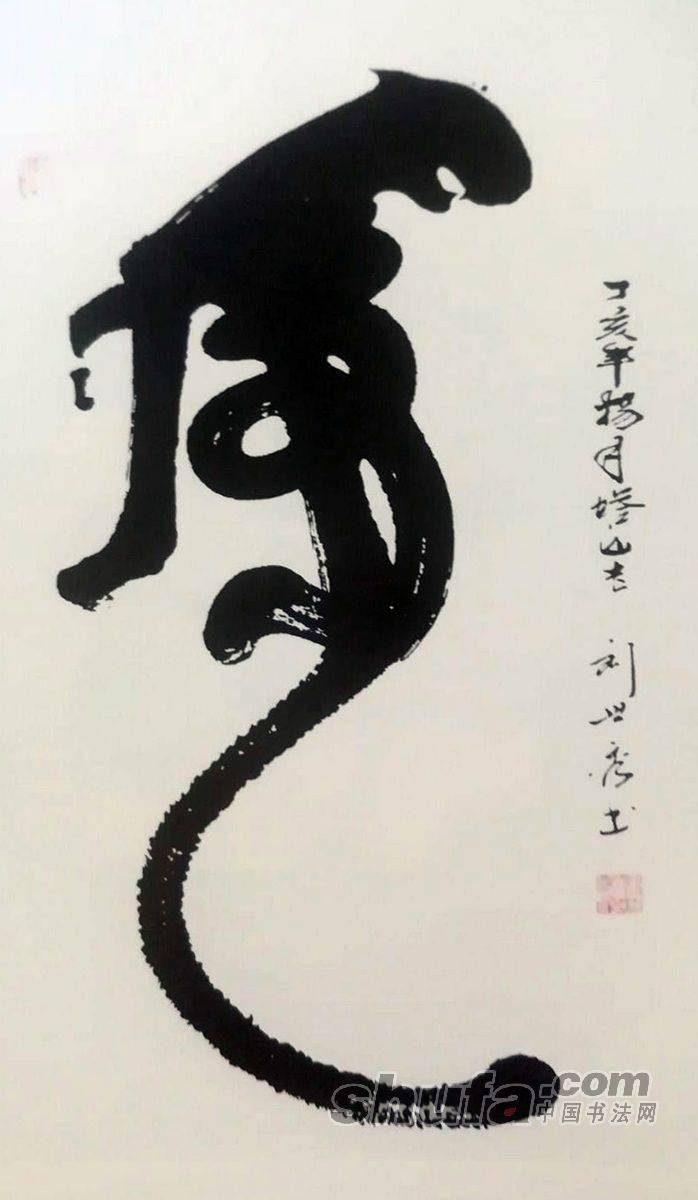 虎
丁亥年杨月塔山书
刘世彦书
shufa.com
中国书法网